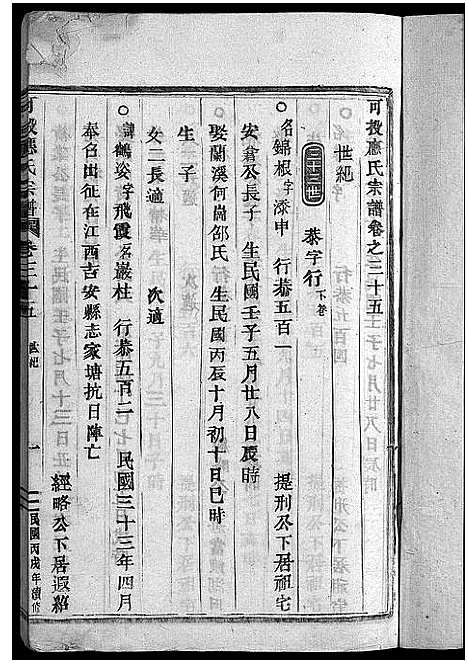 可投應氏宗譜卷之三十五
世紀
三十三世 恭字行下卷
名錦根字添申 行恭五百一 提刑公下居祖宅
安倉公長子 生民國壬子五月廿八日辰時
娶蘭溪何崗邵氏 生民國丙辰十月初十日巳時
生一子
女二長適 次適
諱鶴姿字飛霞名巖柱 行恭五百二 民國三十三年四月
奉名出征在江西吉安縣志家塘抗日陣亡
經略公下居遐紹
可投應氏宗譜 卷三十五 世紀 一 民國丙戌年續修